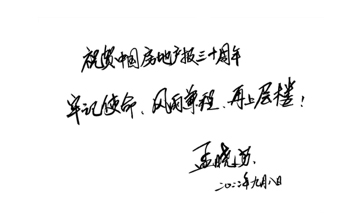 祝贺中国房地产报三十周年
牢记使命、风雨兼程、再上层楼！
孟晓苏
二〇二二年九月八日